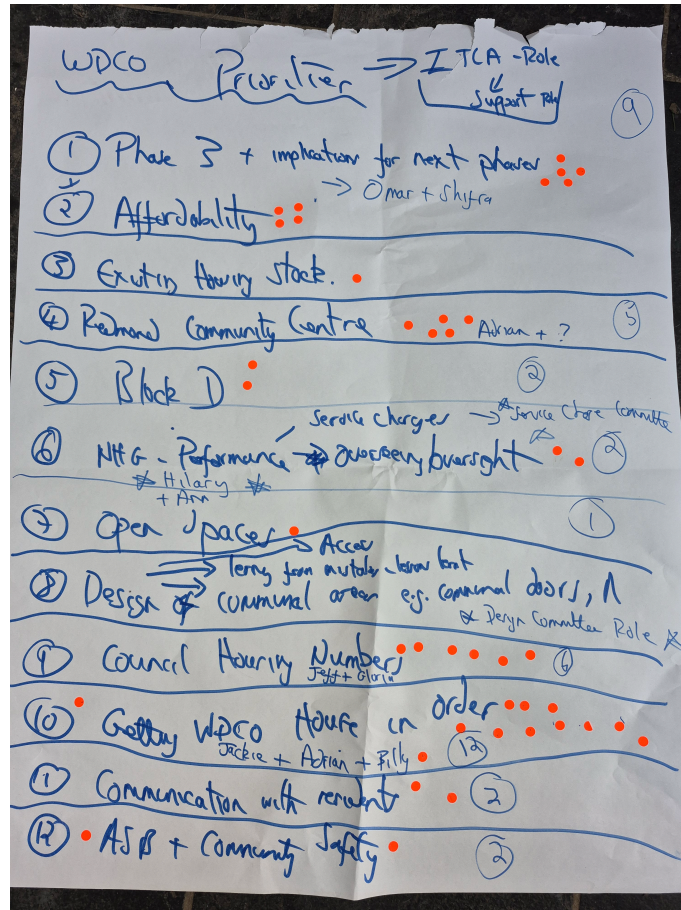 WDCO Priorities → ITCA - Role
Support Role
9
1 Phase 3 + implication for next phases
+
→ Omar + Shifra
2 Affordability
3 Existing Housing Stock.
4 Redmond Community Centre Adrian + ? 5
5 Block D 2
Service Charges → Service Charge Committee
6 NHG - Performance → overseeing/oversight 2
Hilary
+ Ann
7 Open Spaces 1
→ Access
→ lerny from mistakes - lesson learnt
8 Design of communal areas e.g. communal doors,
Design Committee Role
9 Council Housing Numbers 6
Jeff + Gloria
10 Getting WDCO House in order
Jackie + Adrian + Billy 12
11 Communication with residents 2
12 ASB + Community Safety 2